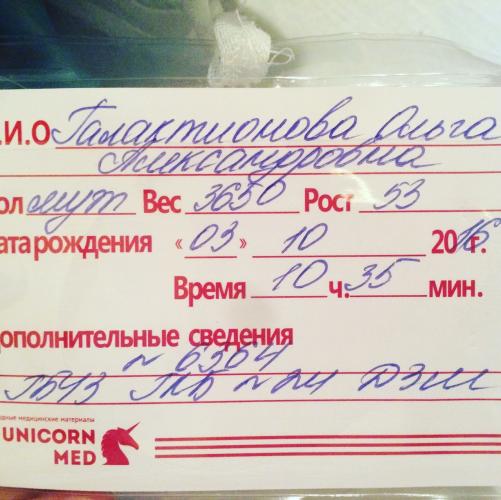 .И.О Галактионова Ольга
Александровна
ол муж Вес 3650 Рост 53
ата рождения « 03 » 10 2016 г.
Время 10 ч. 35 мин.
ополнительные сведения
~ 6564
ГБУЗ ГКБ ~ 24 ДЗМ
одные медицинские материалы
UNICORN
MED